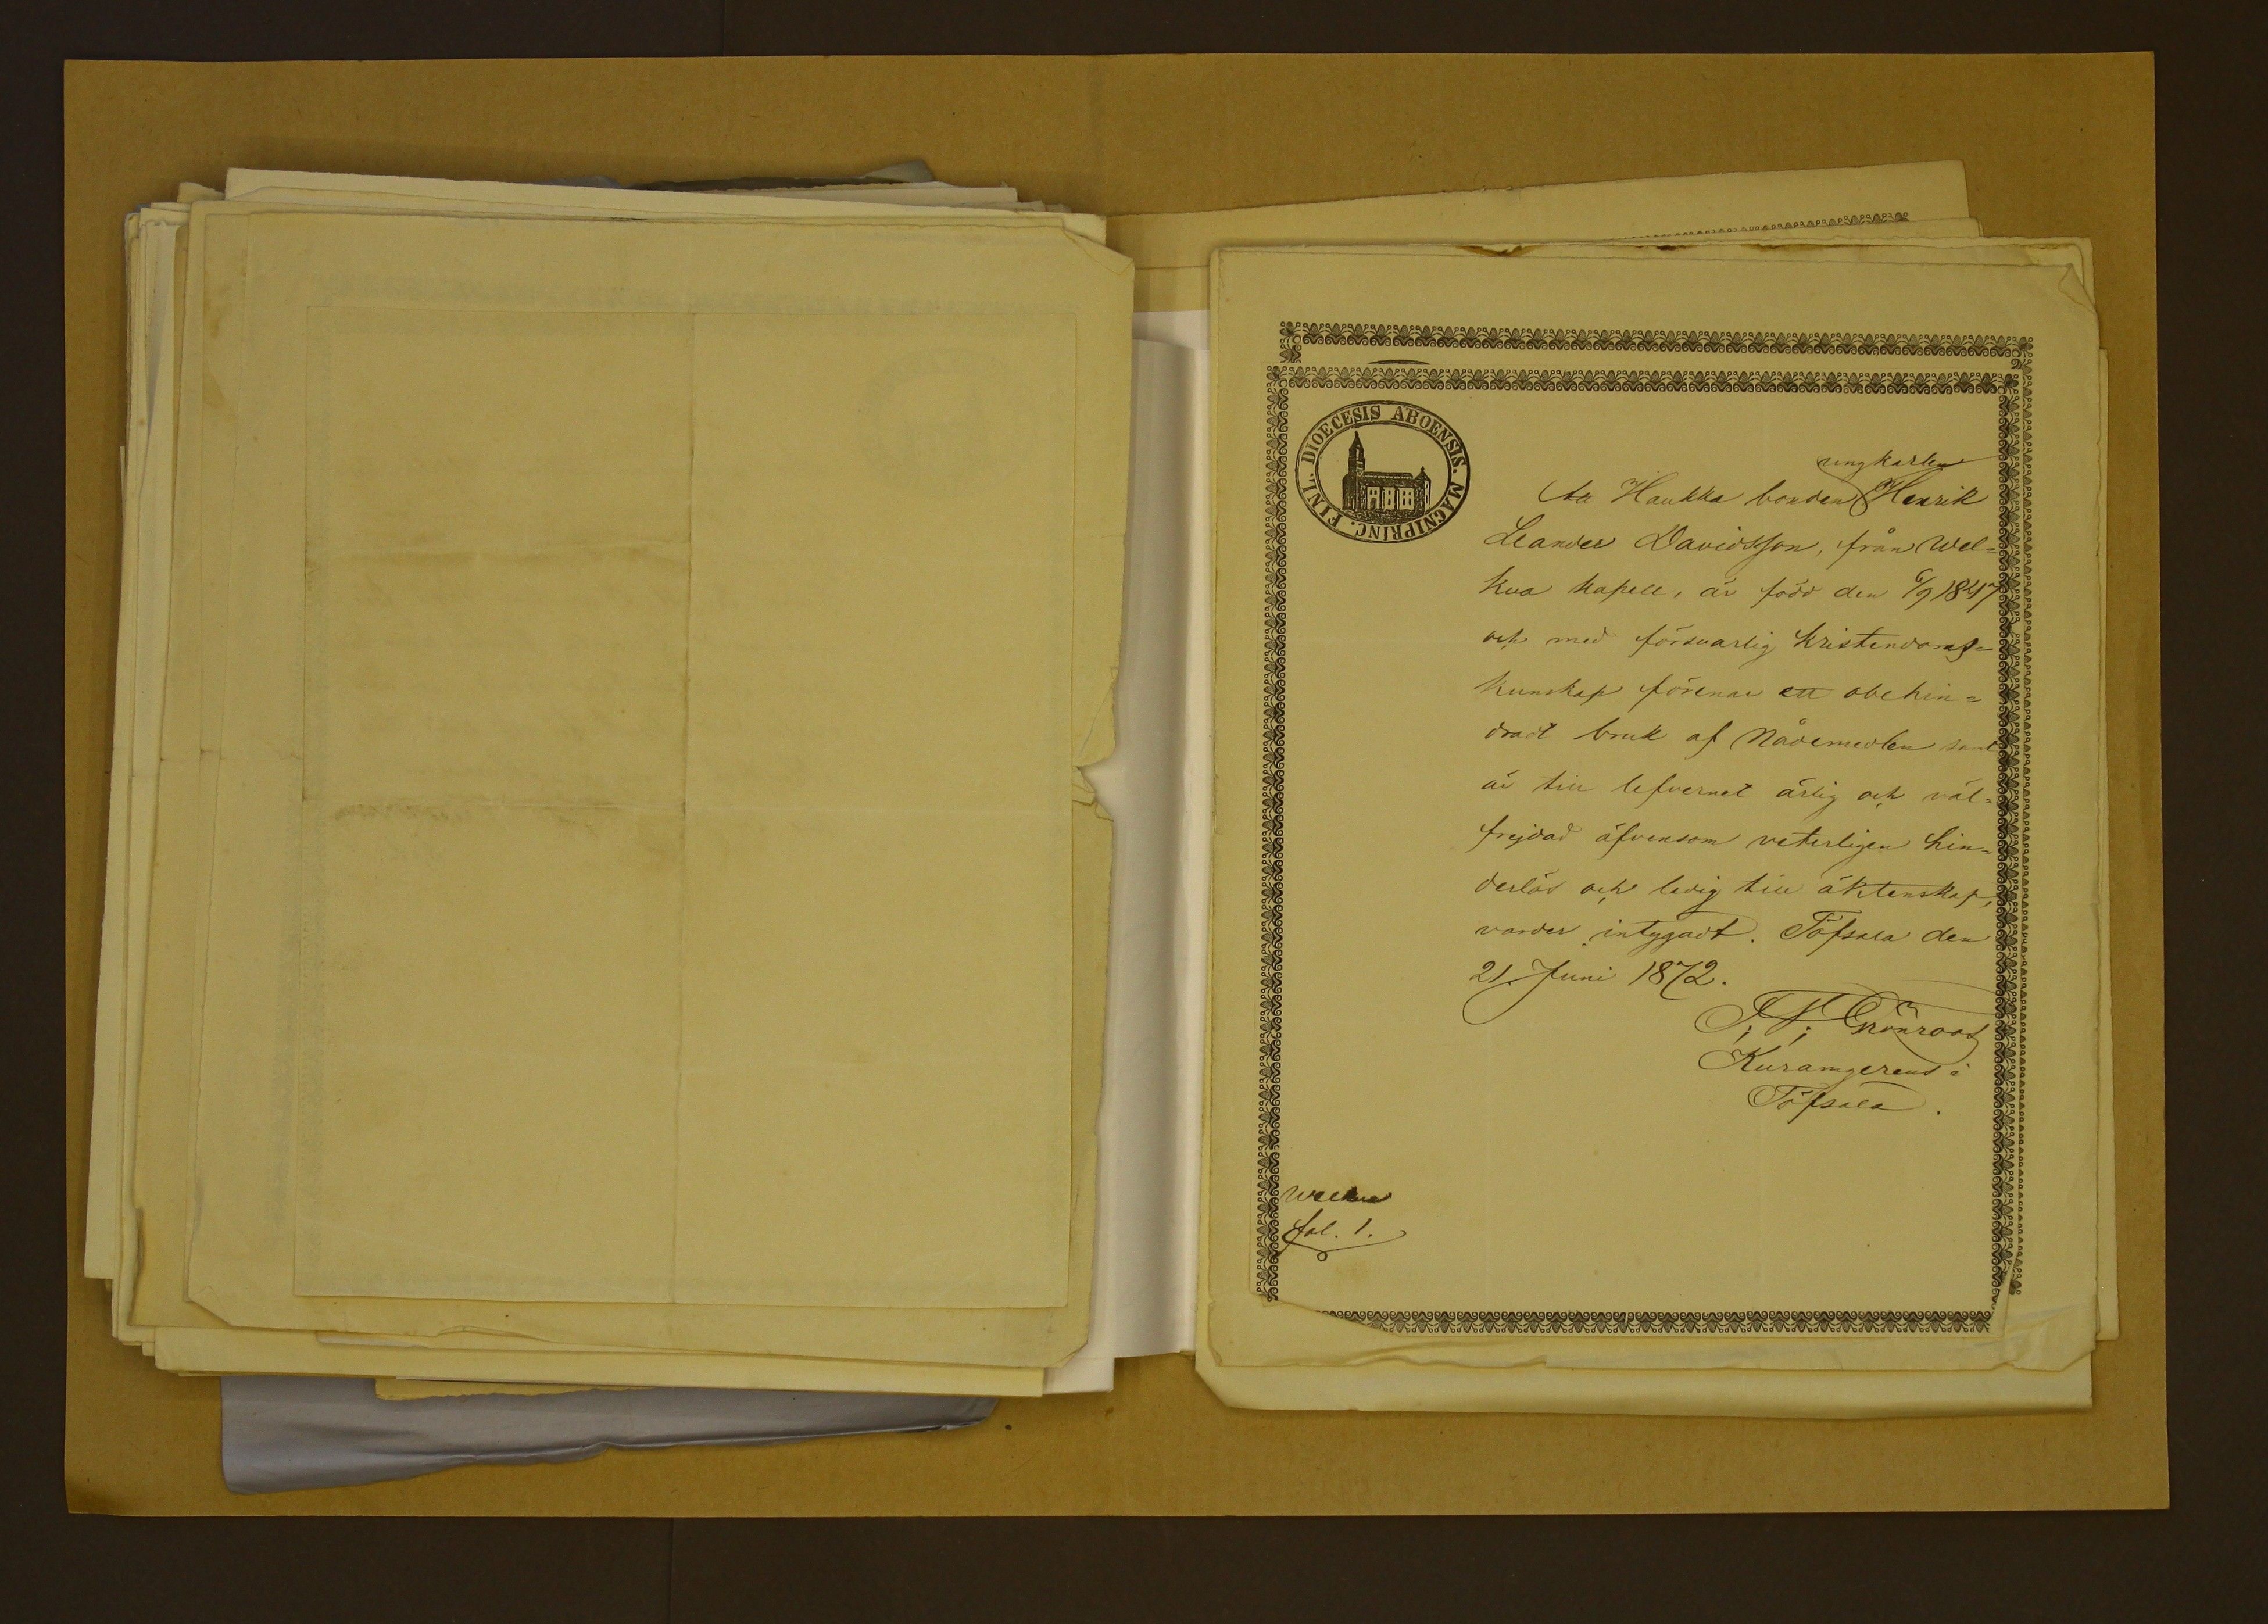 FINL. DIOECESIS ABOENSIS. MAGNIPRINC.
ungkarlen
Att Haukka bonden Henrik
Leander Davidsson, från Wel=
kua kapell, är född den 6/9 1847
och med försvarlig kristendoms=
kunskap förenar ett obehin=
dradt bruk af Nådemedlen samt
är till lefvernet ärlig och väl=
frejdad äfvensom veterligen hin=
derlös och ledig till äktenskap,
varder intygadt. Töfsala den
21 Juni 1872.
Grönroos
Kuramgerens i
Töfsala.
Welkua
fol. 1.